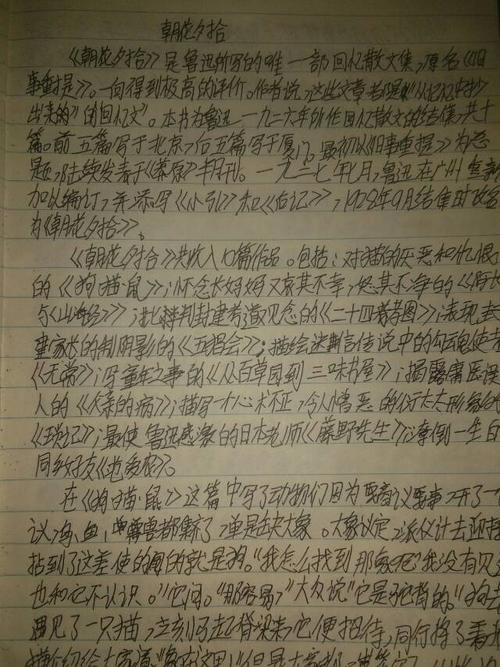 朝花夕拾
《朝花夕拾》是鲁迅所写的唯一一部回忆散文集,原名《旧
事重提》。一向得到极高的评价。作者说,这些文章都是“从记忆中抄
出来的”“的回忆文”。本书为鲁迅一九二六年所作回忆散文的结集,共十
篇。前五篇写于北京,后五篇写于厦门。最初以《旧事重提》为总
题,陆续发表于《莽原》半月刊。一九二七年七月,鲁迅在广州重新
加以编订,并添写《小引》和《后记》,1928年9月结集时改名
为《朝花夕拾》。
《朝花夕拾》共收入10篇作品。包括:对猫的厌恶和仇恨
的《狗猫鼠》;怀念长妈妈又哀其不幸,怒其不争的《阿长
与《山海经》》;批判封建孝道观念的《二十四孝图》;表现封
建家长的制阴影的《五猖会》;描绘迷信传说中的勾魂使者
《无常》;写童年之事的《从百草园到三味书屋》;揭露庸医误
人的《父亲的病》;描写一个心术不正,令人憎恶的衍太太形象的
《琐记》;最使鲁迅感激的日本老师《藤野先生》;潦倒一生的
同乡好友《范爱农》。
在《狗猫鼠》这篇中写了动物们因为要商议要事,开了一
议,鸟、鱼、兽都齐了,单是缺大象。大家议定,派伙计去迎接
拈到了这差使的阄的就是狗。“我怎么找到那象呢?我没有见
也和它不认识。”它问。“那容易,”大众说“它是驼背的。”狗去
遇见了一只猫,立刻弓起脊梁来,它便招待,同行,将